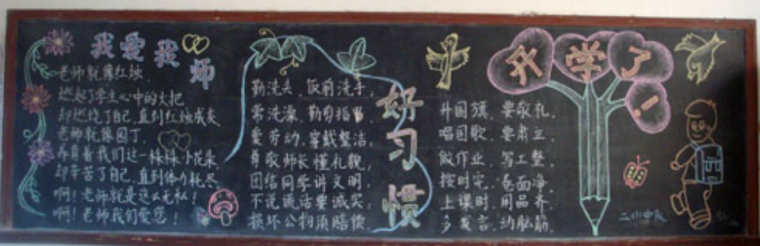 我爱我师
老师就像红烛，
燃起了学生心中的火把
却燃烧了自己，直到红烛成灰
老师就像园丁，
养育着我们这一株株小花朵
却辛苦了自己，直到体力耗尽
啊！老师就是这么无私！
啊！老师我们爱您！
好习惯
勤洗头，饭前洗手，
常洗澡，勤剪指甲，
爱劳动，穿戴整洁，
尊敬师长懂礼貌，
团结同学讲文明，
不说谎话要诚实，
损坏公物须赔偿
开学了！
升国旗，要敬礼，
唱国歌，要肃立，
做作业，写工整，
按时完，卷面净，
上课时，用品齐，
多发言，动脑筋